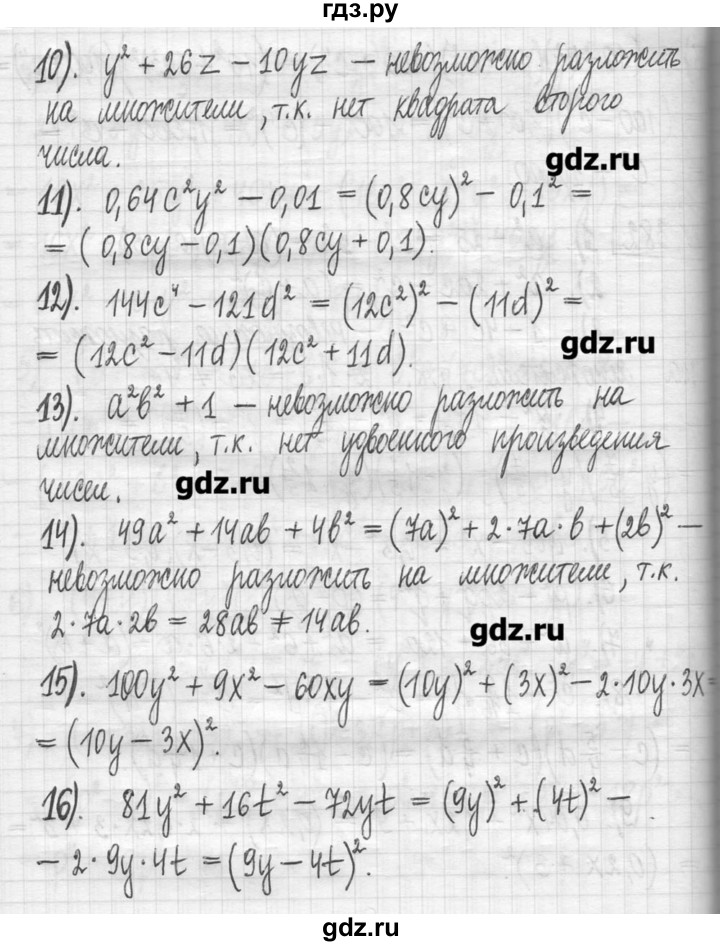 гдз.ру
10). y² + 26z − 10yz − невозможно разложить
на множители, т.к. нет квадрата второго
числа.
gdz.ru
11). 0,64c²y² − 0,01 = (0,8cy)² − 0,1² =
= (0,8cy − 0,1)(0,8cy + 0,1).
12). 144c⁴ − 121d² = (12c²)² − (11d)² =
= (12c² − 11d)(12c² + 11d).
gdz.ru
13). a²b² + 1 − невозможно разложить на
множители, т.к. нет удвоенного произведения
чисел.
gdz.ru
14). 49a² + 14ab + 4b² = (7a)² + 2·7a·b + (2b)² −
невозможно разложить на множители, т.к.
2·7a·2b = 28ab ≠ 14ab.
gdz.ru
15). 100y² + 9x² − 60xy = (10y)² + (3x)² − 2·10y·3x =
= (10y − 3x)².
16). 81y² + 16t² − 72yt = (9y)² + (4t)² −
− 2·9y·4t = (9y − 4t)².
gdz.ru